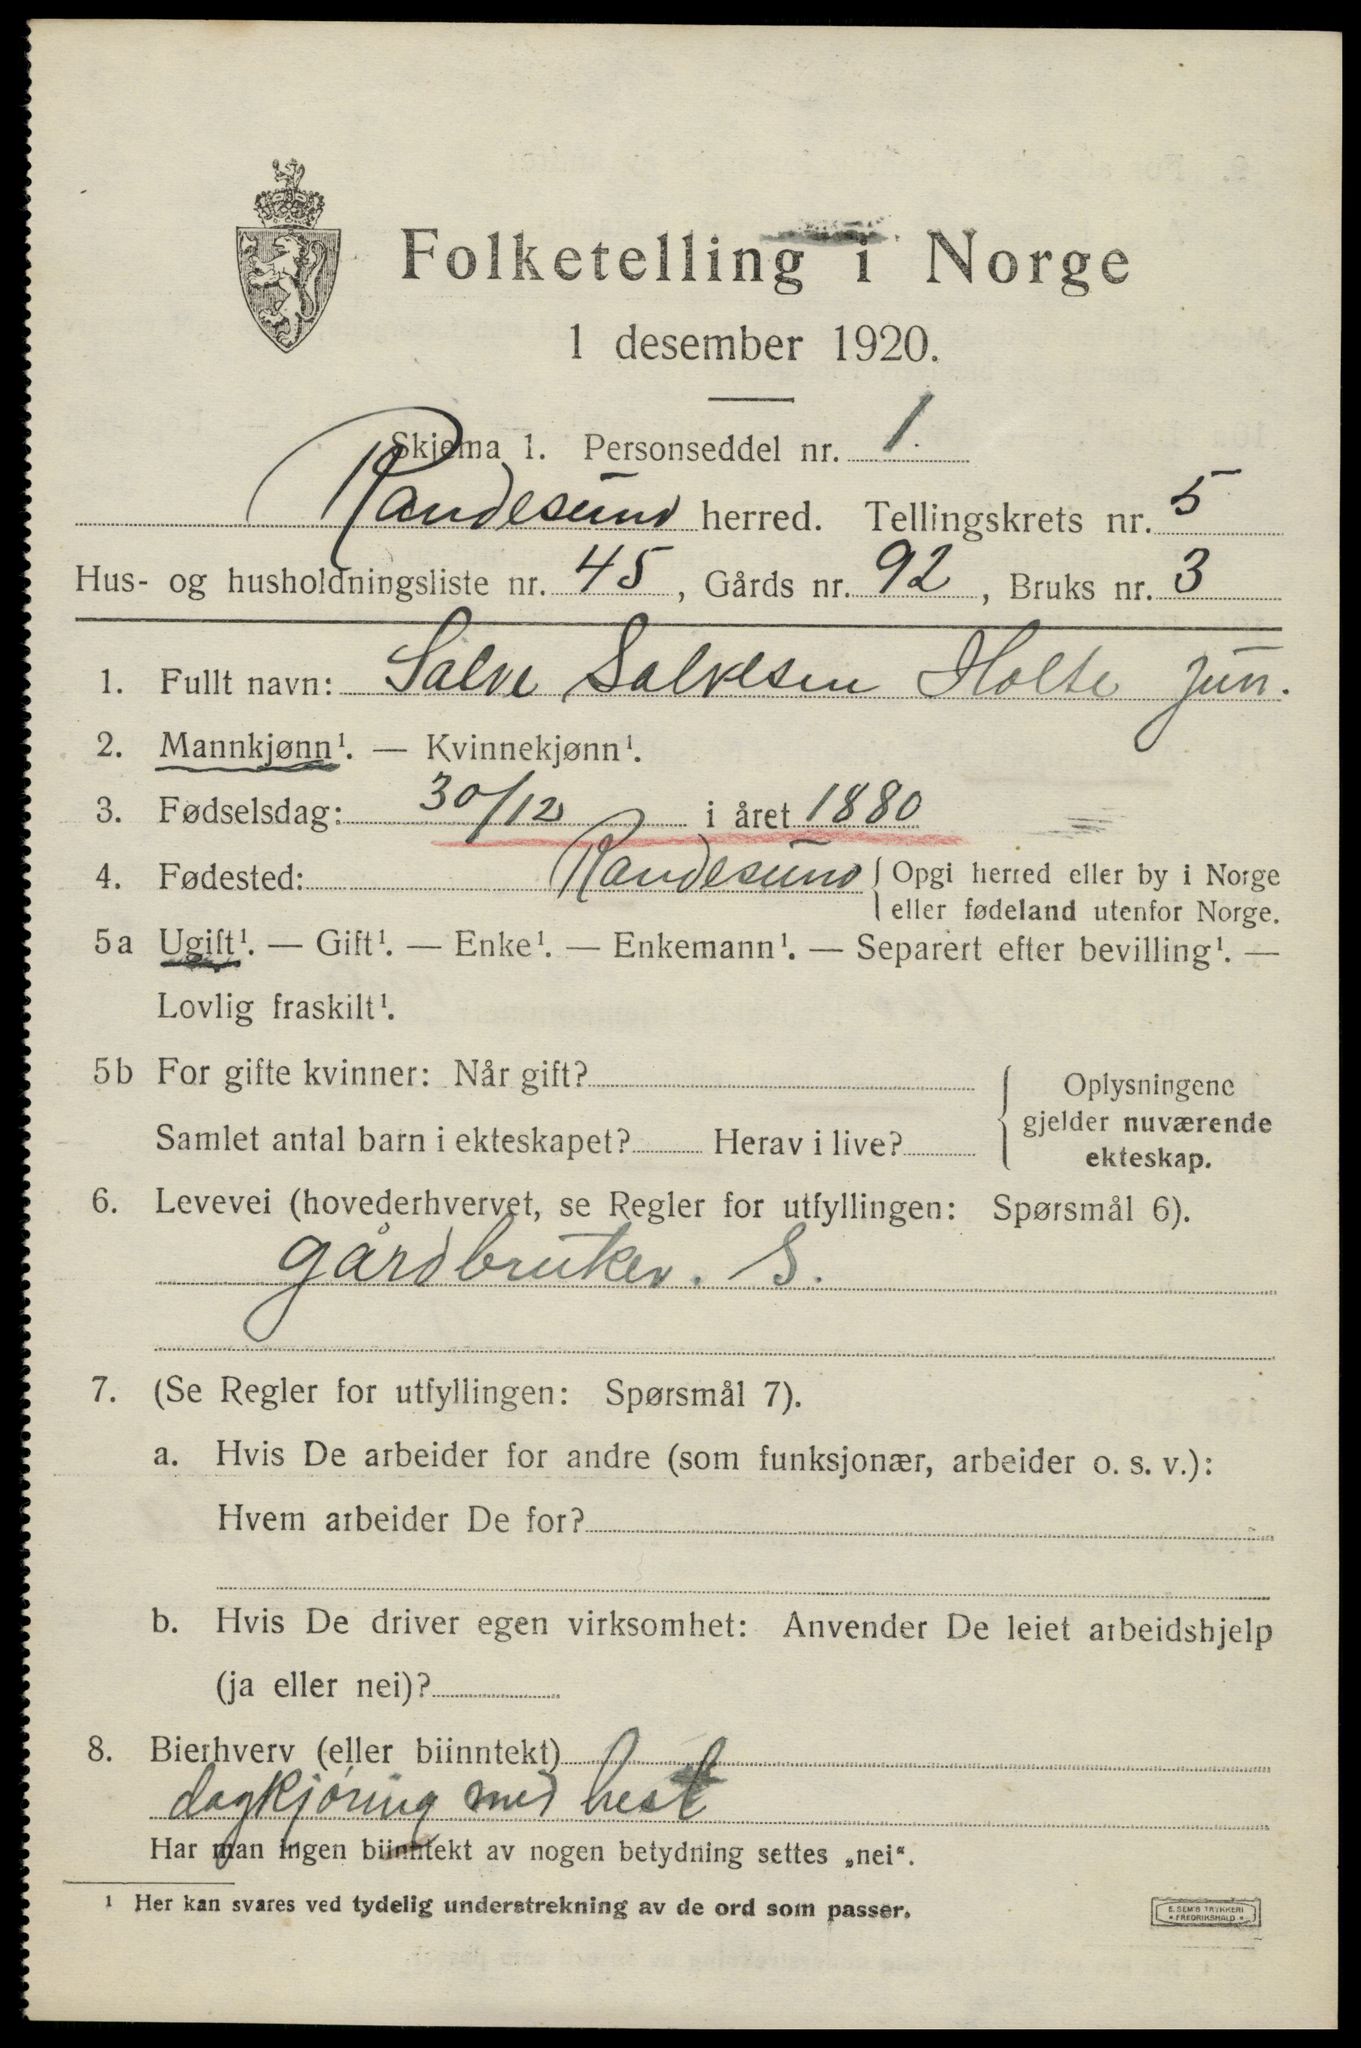 Folketelling i Norge
1 desember 1920.
Skjema 1. Personseddel nr. 1.
Randesund herred. Tellingskrets nr. 5
Hus- og husholdningsliste nr. 45, Gårds nr. 92, Bruks nr. 3
1. Fullt navn: Salve Salvesen Holte jun.
2. Mannkjønn¹. — Kvinnekjønn¹.
3. Fødselsdag: 30/12 i året 1880
4. Fødested: Randesund { Opgi herred eller by i Norge
eller fødeland utenfor Norge.
5a Ugift¹. — Gift¹. — Enke¹. — Enkemann¹. — Separert efter bevilling¹. —
Lovlig fraskilt¹.
5b For gifte kvinner: Når gift?
Samlet antal barn i ekteskapet? Herav i live?
Oplysningene
gjelder nuværende
ekteskap.
6. Levevei (hovederhvervet, se Regler for utfyllingen: Spørsmål 6).
gårdbruker. S.
7. (Se Regler for utfyllingen: Spørsmål 7).
a. Hvis De arbeider for andre (som funksjonær, arbeider o. s. v.):
Hvem arbeider De for?
b. Hvis De driver egen virksomhet: Anvender De leiet arbeidshjelp
(ja eller nei)?
8. Bierhverv (eller biinntekt)
dagkjøring med hest
Har man ingen biinntekt av nogen betydning settes „nei“.
¹ Her kan svares ved tydelig understrekning av de ord som passer.
E. SEM'S TRYKKERI
* FREDRIKSHALD *